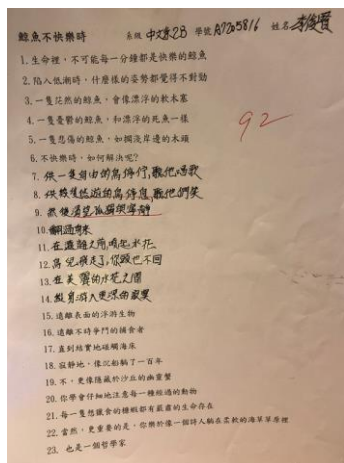 鯨魚不快樂時 系級 中文系2B 學號 A7205816 姓名
92
1. 生命裡，不可能每一分鐘都是快樂的鯨魚
2. 陷入低潮時，什麼樣的姿勢都覺得不對勁
3. 一隻茫然的鯨魚，會像漂浮的軟木塞
4. 一隻憂鬱的鯨魚，和漂浮的死魚一樣
5. 一隻悲傷的鯨魚，如擱淺岸邊的木頭
6. 不快樂時，如何解決呢？
7. 供一隻自由的鳥停佇，聽他唱歌
8. 供數隻悠遊的鳥停息，聽他們笑
9. 然後渴望孤獨與寧靜
10. 翻過身來
11. 在遼雜之所噴起水花
12. 鳥兒飛走了，你頭也不回
13. 在美麗的水花之間
14. 縱身游入更深的寂寞
15. 遠離表面的浮游生物
16. 遠離不時爭鬥的捕食者
17. 直到結實地碰觸海床
18. 寂靜地，像沉船躺了一百年
19. 不，更像隱藏於沙丘的幽靈蟹
20. 你學會仔細地注意每一種經過的動物
21. 每一隻想獵食的糠蝦都有嚴肅的生命存在
22. 當然，更重要的是，你樂於像一個詩人躺在柔軟的海草草原裡
23. 也是一個哲學家